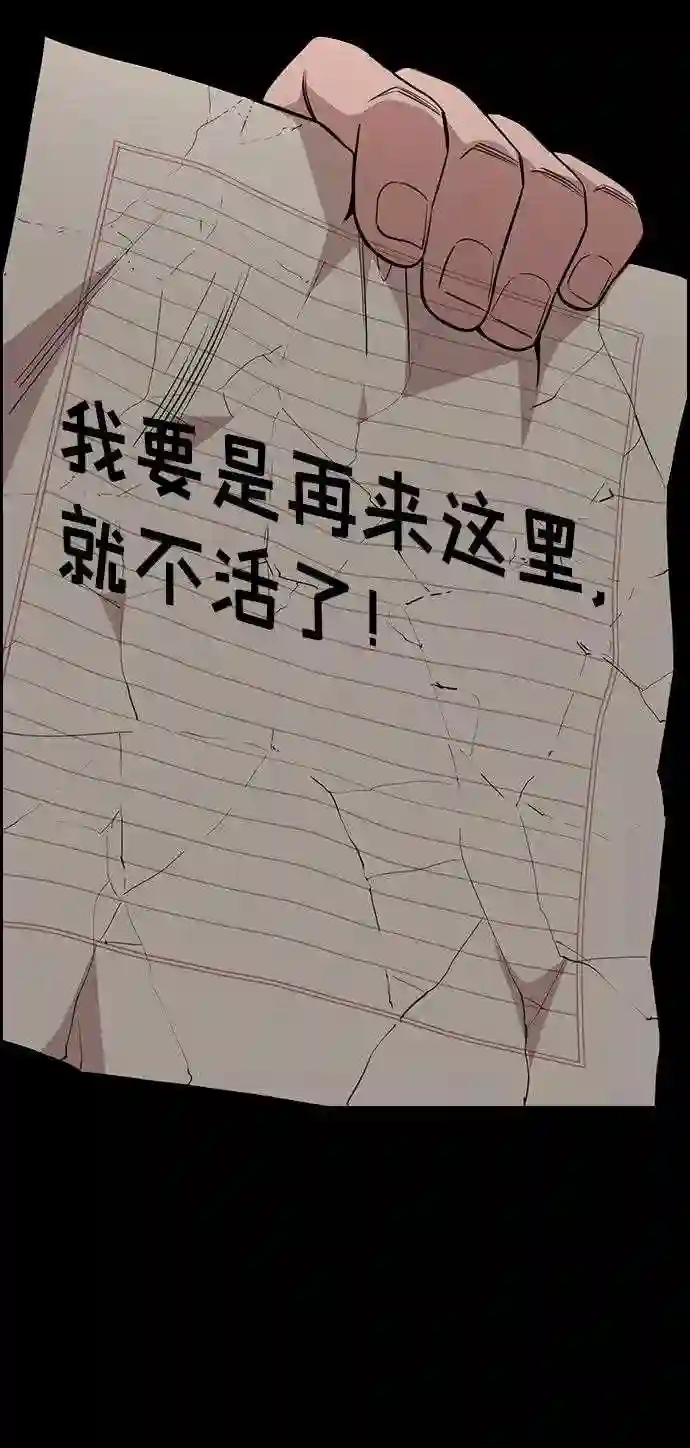 我要是再来这里,
就不活了!